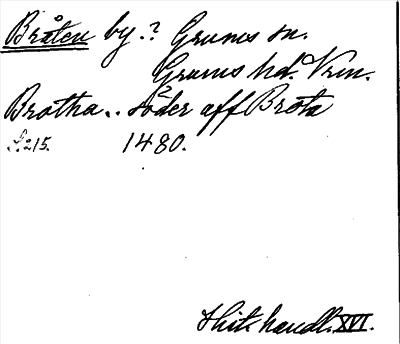 Bråten by.? Grums sn.
Grums hd. Vrm.
Brotha.. söder aff Brota
S. 215. 1480.
Hist. handl. XVI.